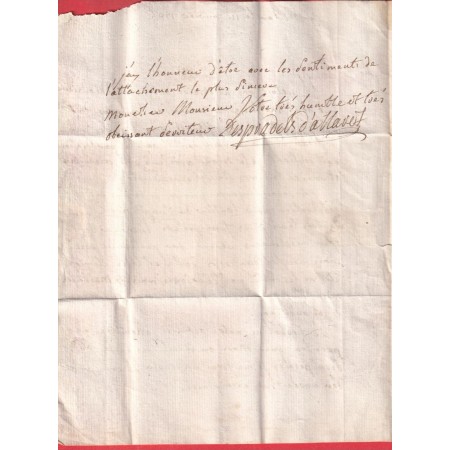 j'ay l'honneur d'être avec les sentiments de
l'attachement le plus sincere
Monsieur Monsieur Votre très humble et très
obeissant serviteur Despradels d'allaret